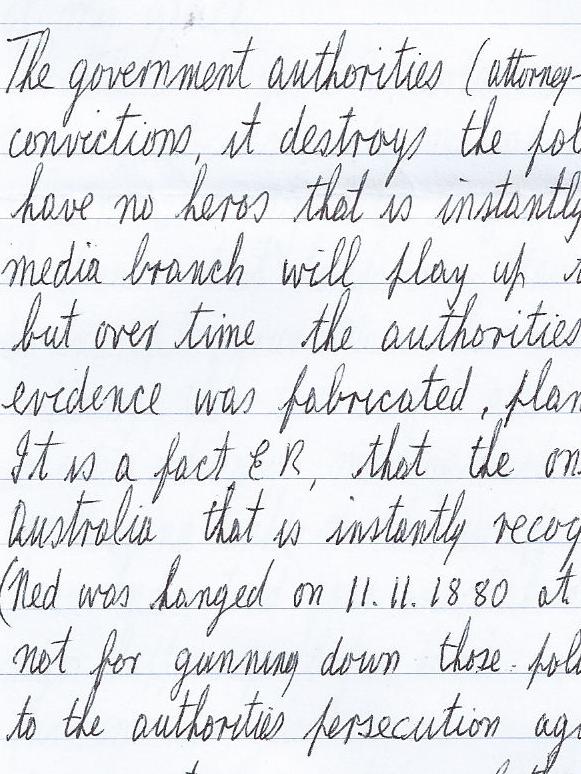 The government authorities (attorney-
convictions, it destroys the pol
have no heros that is instantly
media branch will play up
but over time the authorities
evidence was fabricated, plan
It is a fact E R, that the on
Australia that is instantly recog
(Ned was hanged on 11.11.1880 at
not for gunning down those poli
to the authorities persecution aga